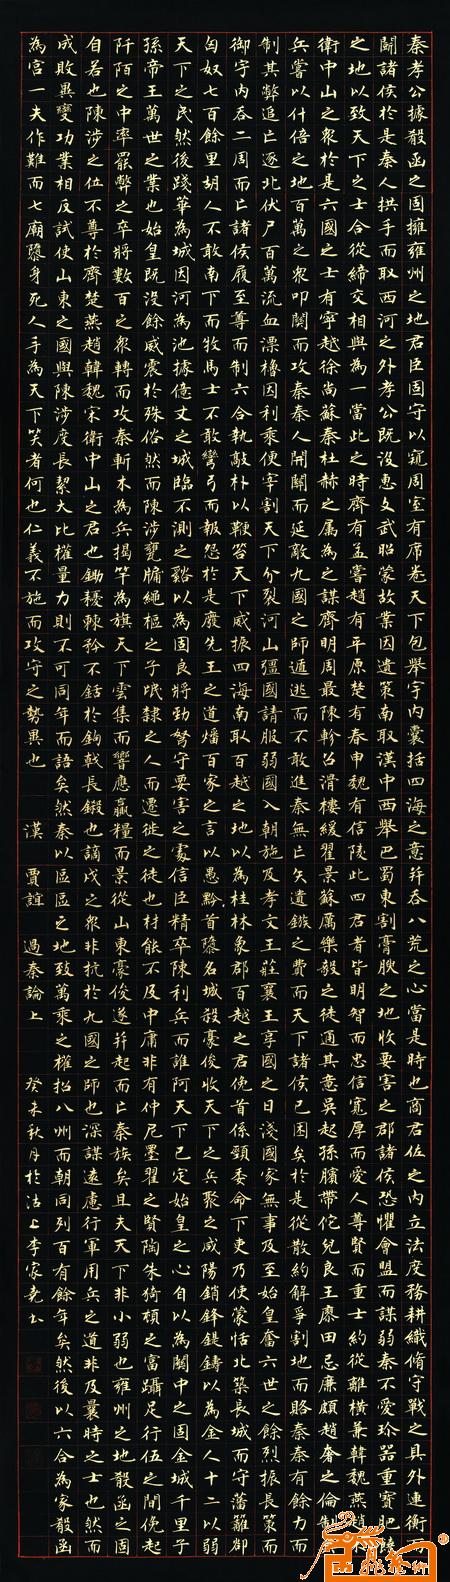 秦孝公據殽函之固擁雍州之地君臣固守以窺周室有席卷天下包舉宇內囊括四海之意并吞八荒之心當是時也商君佐之內立法度務耕織脩守戰之具外連衡而
鬭諸侯於是秦人拱手而取西河之外孝公既沒惠文武昭蒙故業因遺策南取漢中西舉巴蜀東割膏腴之地收要害之郡諸侯恐懼會盟而謀弱秦不愛珍器重寶肥饒
之地以致天下之士合從締交相與為一當此之時齊有孟嘗趙有平原楚有春申魏有信陵此四君者皆明智而忠信寬厚而愛人尊賢而重士約從離橫兼韓魏燕趙宋
衛中山之眾於是六國之士有寧越徐尚蘇秦杜赫之屬為之謀齊明周最陳軫召滑樓緩翟景蘇厲樂毅之徒通其意吳起孫臏帶佗兒良王廖田忌廉頗趙奢之倫制其
兵嘗以什倍之地百萬之眾叩關而攻秦秦人開關而延敵九國之師遁逃而不敢進秦無亡矢遺鏃之費而天下諸侯已困矣於是從散約解爭割地而賂秦秦有餘力而
制其弊追亡逐北伏尸百萬流血漂櫓因利乘便宰割天下分裂河山彊國請服弱國入朝施及孝文王莊襄王享國之日淺國家無事及至始皇奮六世之餘烈振長策而
御宇內吞二周而亡諸侯履至尊而制六合執敲朴以鞭笞天下威振四海南取百越之地以為桂林象郡百越之君俛首係頸委命下吏乃使蒙恬北築長城而守藩籬卻
匈奴七百餘里胡人不敢南下而牧馬士不敢彎弓而報怨於是廢先王之道燔百家之言以愚黔首隳名城殺豪俊收天下之兵聚之咸陽銷鋒鍉鑄以為金人十二以弱
天下之民然後踐華為城因河為池據億丈之城臨不測之谿以為固良將勁弩守要害之處信臣精卒陳利兵而誰何天下已定始皇之心自以為關中之固金城千里子
孫帝王萬世之業也始皇既沒餘威震於殊俗然而陳涉甕牖繩樞之子氓隸之人而遷徙之徒也材能不及中庸非有仲尼墨翟之賢陶朱猗頓之富躡足行伍之間俛起
阡陌之中率罷弊之卒將數百之眾轉而攻秦斬木為兵揭竿為旗天下雲集而響應贏糧而景從山東豪俊遂并起而亡秦族矣且夫天下非小弱也雍州之地殽函之固
自若也陳涉之位不尊於齊楚燕趙韓魏宋衛中山之君也鋤耰棘矜不銛於鉤戟長鎩也謫戍之眾非抗於九國之師也深謀遠慮行軍用兵之道非及曩時之士也然而
成敗異變功業相反試使山東之國與陳涉度長絜大比權量力則不可同年而語矣然秦以區區之地致萬乘之權招八州而朝同列百有餘年矣然後以六合為家殽函
為宮一夫作難而七廟隳身死人手為天下笑者何也仁義不施而攻守之勢異也 漢 賈誼 過秦論上 癸未秋月於沽上李家堯書